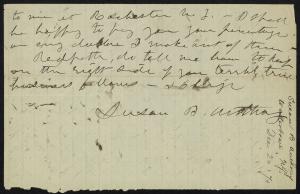 to me at Rochester N. Y. - I shall
be happy to pay you your percentage
on any lecture I make out of them
Redpath, do tell me how to keep
on the right side of you terribly true
business fellows -
Susan B. Anthony
Susan B. Anthony
Rochester, N.Y.
Dec. 20